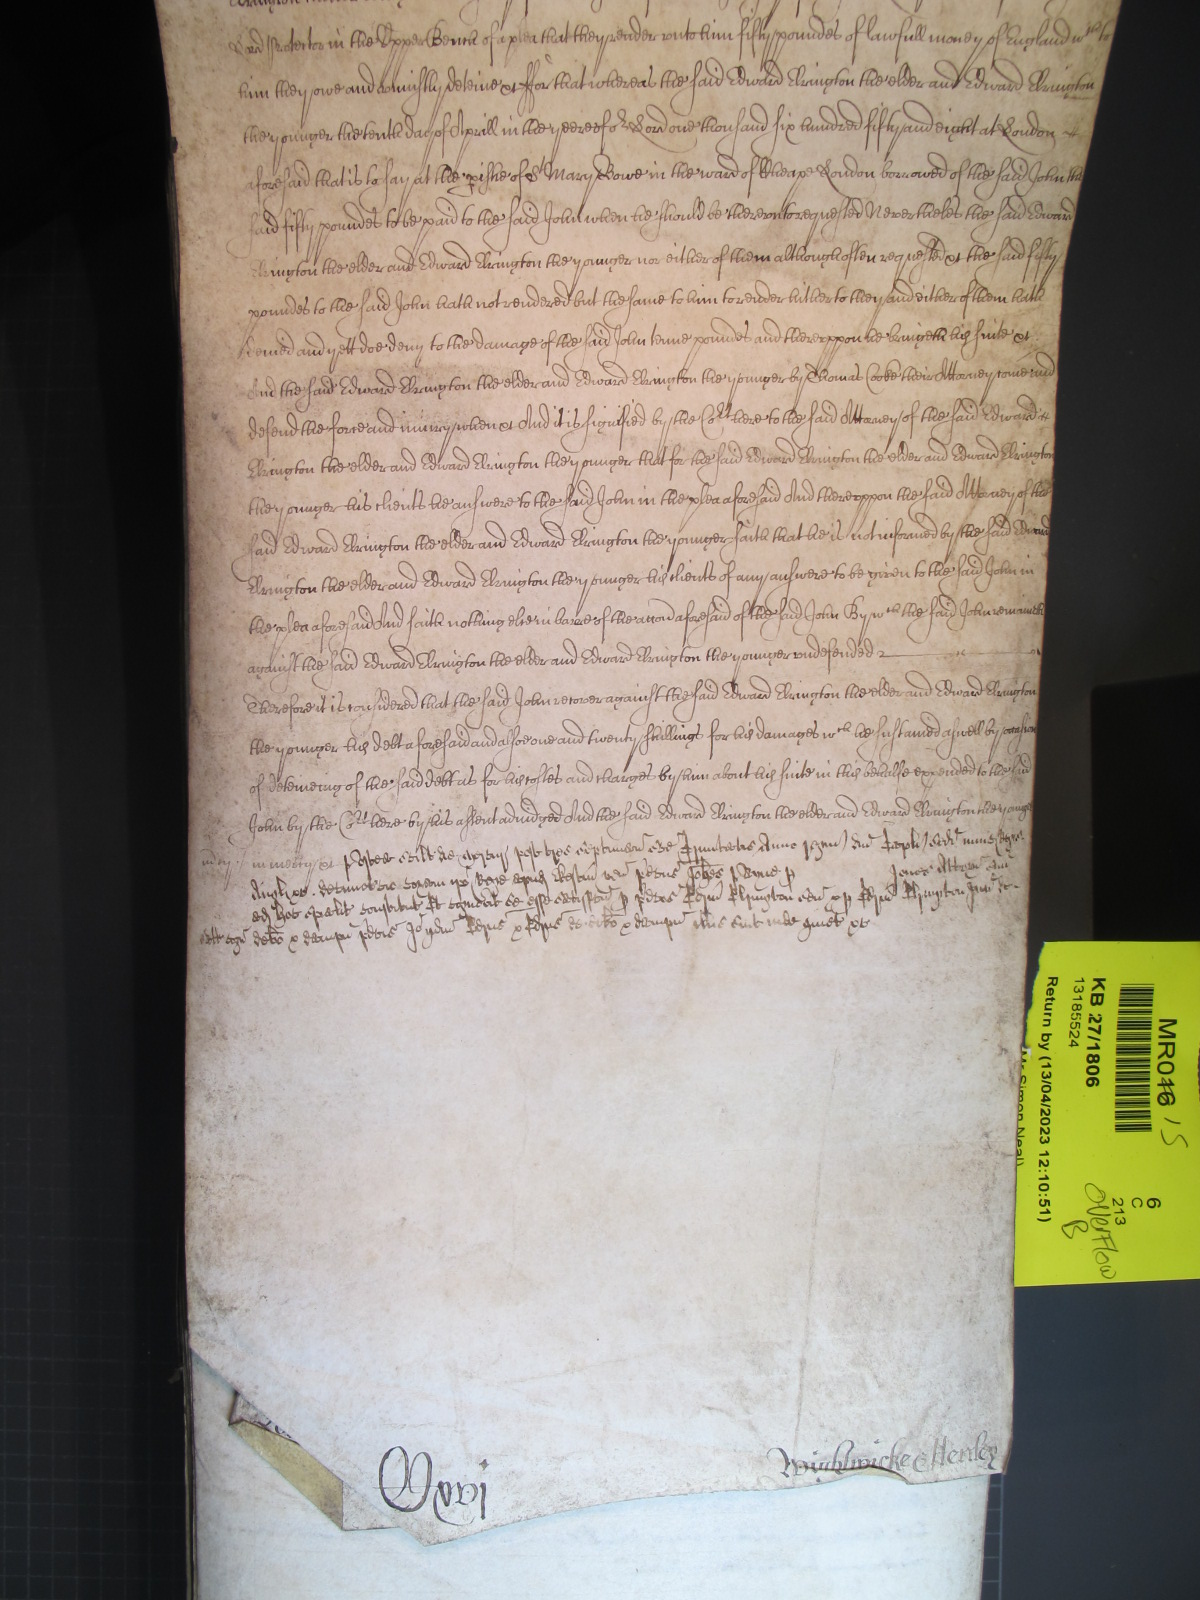 Lord Protector in the Upper Bench of a plea that they render unto him fifty poundes of lawfull money of England wch to
him they owe and uniustly deteine &c ffor that whereas the said Edward Elrington the elder and Edward Elrington
the younger the tenth day of Aprill in the yeere of or Lord one thousand six hundred fifty and eight at London
aforesaid that is to say at the pishe of St Mary Bowe in the ward of Cheape London borrowed of the said John the
said fifty poundes to be paid to the said John when he should be thereunto requested Neverthelesse the said Edward
Elrington the elder and Edward Elrington the younger nor either of them although often requested &c the said fifty
poundes to the said John hath not rendered but the same to him to render hitherto they and either of them hath
denied and yett doe deny to the damage of the said John tenne poundes and thereuppon he bringeth his suite &c
And the said Edward Elrington the elder and Edward Elrington the younger by Thomas Cooke their Attorney come and
defend the force and iniury when &c And it is signified by the Cort here to the said Attorney of the said Edward
Elrington the elder and Edward Elrington the younger that for the said Edward Elrington the elder and Edward Elrington
the younger his clients he answere to the said John in the plea aforesaid And thereuppon the said Attorney of the
said Edward Elrington the elder and Edward Elrington the younger saith that he is not informed by the said Edward
Elrington the elder and Edward Elrington the younger his clients of any answere to be given to the said John in
the plea aforesaid And saith nothing else in barre of the accon aforesaid of the said John By wch the said John remaineth
against the said Edward Elrington the elder and Edward Elrington the younger undefended
Therefore it is considered that the said John recover against the said Edward Elrington the elder and Edward Elrington
the younger his debt aforesaid and alsoe one and twenty shillings for his damages wch he sustained aswell by occasion
of deteineing of the said debt as for his costes and charges by him about his suite in this behalfe expended to the said
John by the Cort here by his assent adiudged And the said Edward Elrington the elder and Edward Elrington the younger
in mercy &c
Wightwicke & Henley
MR016 15
KB 27/1806
13185524
Return by (13/04/2023 12:10:51)
Mr Simon Neal)
6
C
213
Overflow
B